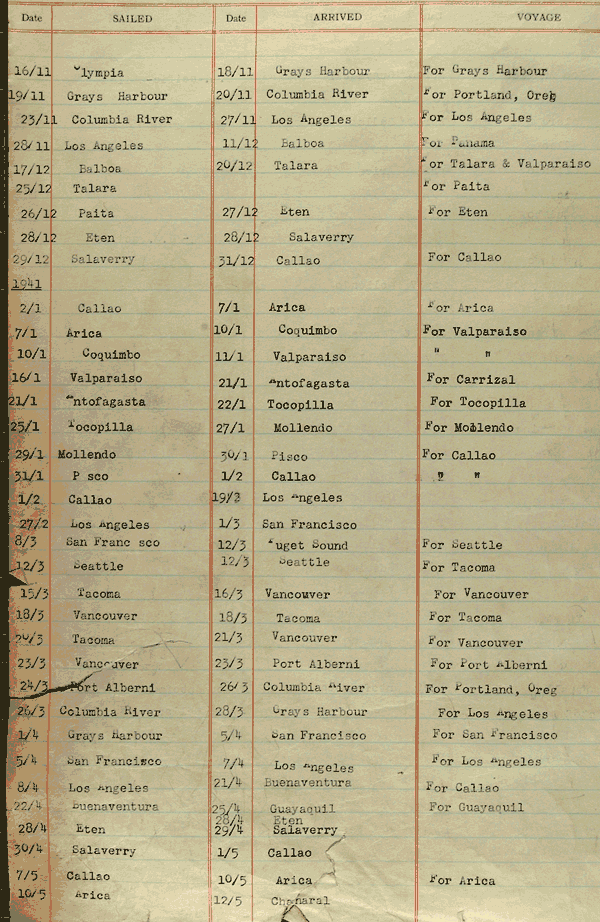 Date SAILED Date ARRIVED VOYAGE
16/11 Olympia 18/11 Grays Harbour For Grays Harbour
19/11 Grays Harbour 20/11 Columbia River For Portland, Oreg
23/11 Columbia River 27/11 Los Angeles For Los Angeles
28/11 Los Angeles 11/12 Balboa For Panama
17/12 Balboa 20/12 Talara For Talara & Valparaiso
25/12 Talara For Paita
26/12 Paita 27/12 Eten For Eten
28/12 Eten 28/12 Salaverry
29/12 Salaverry 31/12 Callao For Callao
1941
2/1 Callao 7/1 Arica For Arica
7/1 Arica 10/1 Coquimbo For Valparaiso
10/1 Coquimbo 11/1 Valparaiso " "
16/1 Valparaiso 21/1 Antofagasta For Carrizal
21/1 Antofagasta 22/1 Tocopilla For Tocopilla
25/1 Tocopilla 27/1 Mollendo For Mollendo
29/1 Mollendo 30/1 Pisco For Callao
31/1 P sco 1/2 Callao " "
1/2 Callao 19/2 Los Angeles
27/2 Los Angeles 1/3 San Francisco
8/3 San Franc sco 12/3 Puget Sound For Seattle
12/3 Seattle 12/3 Seattle For Tacoma
15/3 Tacoma 16/3 Vancouver For Vancouver
18/3 Vancouver 18/3 Tacoma For Tacoma
20/3 Tacoma 21/3 Vancouver For Vancouver
23/3 Vancouver 23/3 Port Alberni For Port Alberni
24/3 Port Alberni 26/3 Columbia River For Portland, Oreg
26/3 Columbia River 28/3 Grays Harbour For Los Angeles
1/4 Grays Harbour 5/4 San Francisco For San Francisco
5/4 San Francisco 7/4 Los Angeles For Los Angeles
8/4 Los Angeles 21/4 Buenaventura For Callao
22/4 Buenaventura 25/4 Guayaquil For Guayaquil
28/4 Eten
28/4 Eten 29/4 Salaverry
30/4 Salaverry 1/5 Callao
7/5 Callao 10/5 Arica For Arica
10/5 Arica 12/5 Chanaral